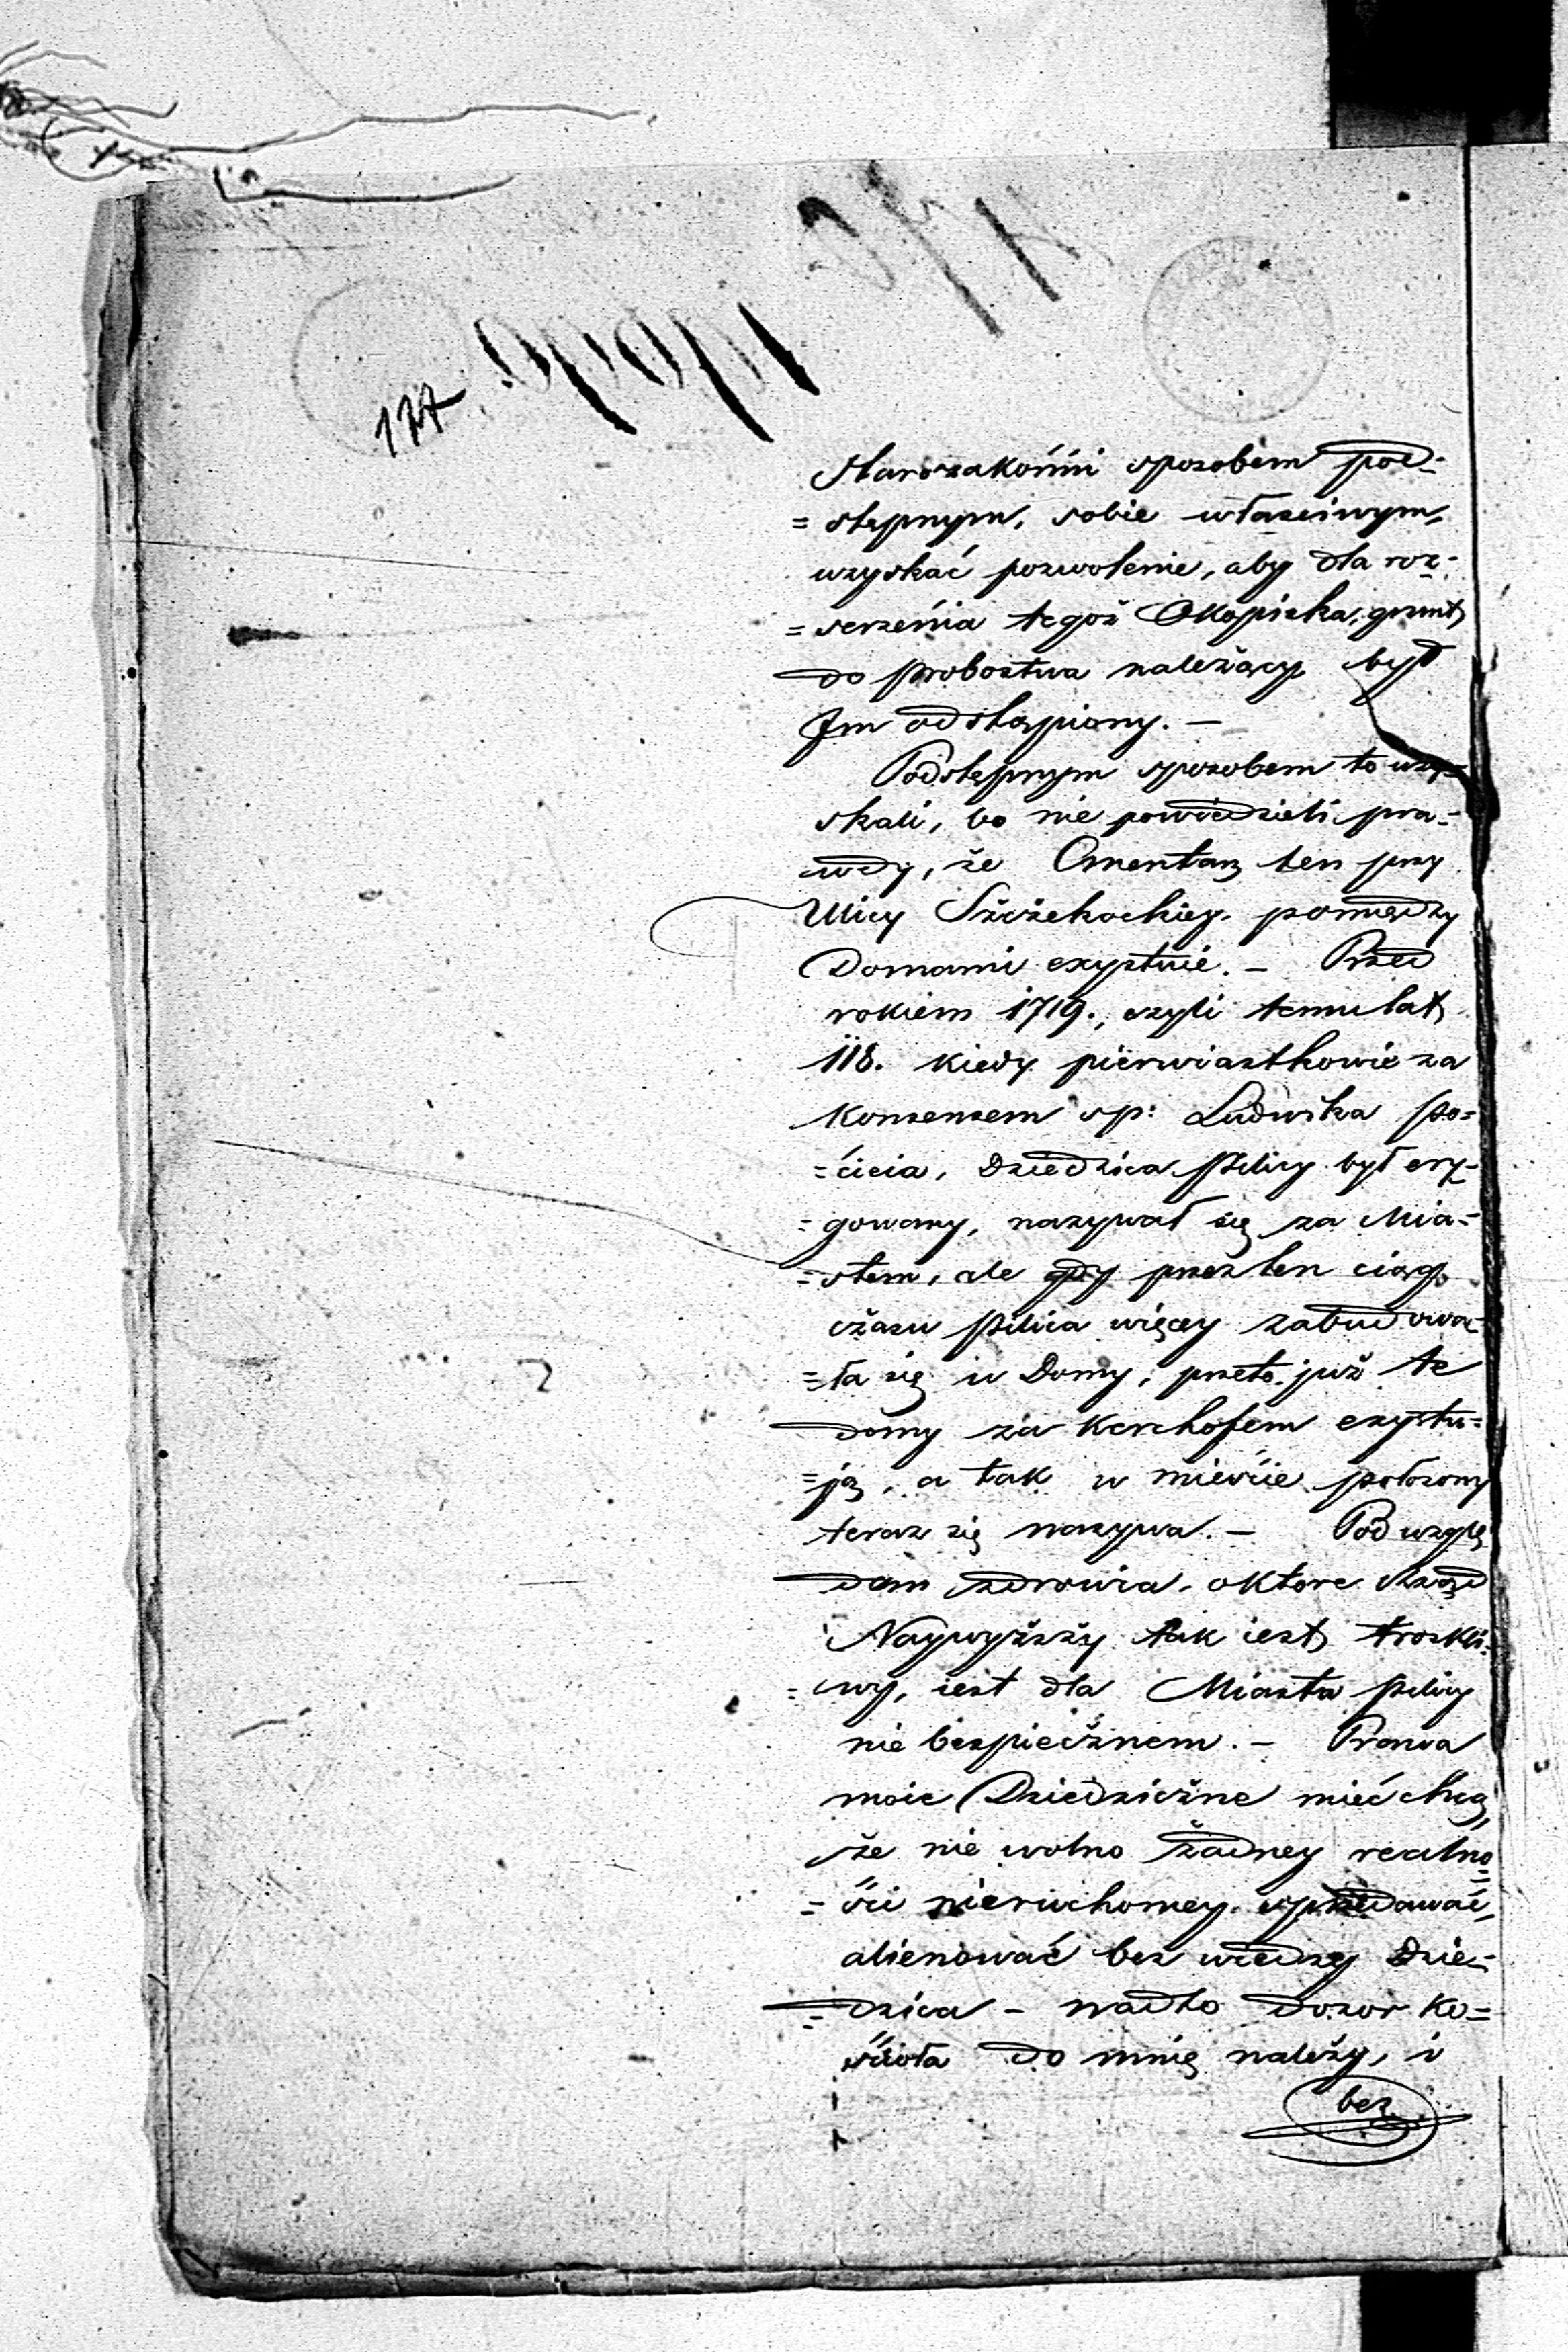 177
Starozakonni sposobem pod-
=stępnym, sobie właściwym,
uzyskać pozwolenie, aby dla roz-
=serzenia tegoż Okopiska, grunt
do probostwa należący był
Jm odstąpiony. —
Podstępnym sposobem to uzy=
skali, bo nie powiedzieli pra-
wdy, że Cmentarz ten przy
Ulicy Szczekockiey pomiędzy
Domami exystuie. — Przed
rokiem 1719., czyli temu lat
118. kiedy pierwiastkowie za
Konsensem śp: Ludwika Po=
=ćieia, Dziedzica Pilicy był ery-
=gowany, nazywał się za Mia=
=stem, ale gdy przez ten ciąg
czasu Pilica więcey zabudowa-
=ła się w Domy, przeto już te
domy za Kerchofem exystu=
=ją, a tak w mieście położony
teraz się nazywa. — Pod wzglę
dem zdrowia, o które Rząd
Naywyższy tak iest troskli-
=wy, iest dla Miasta Pilicy
nie bezpiecznem. — Prawa
moie Dziedziczne mieć chcą,
że nie wolno żadney realno=
=ści nieruchomey sprzedawać,
alienować bez wiedzy Dzie-
=dzica — nadto dozor Ko=
ścioła do mnię należy, i
bez